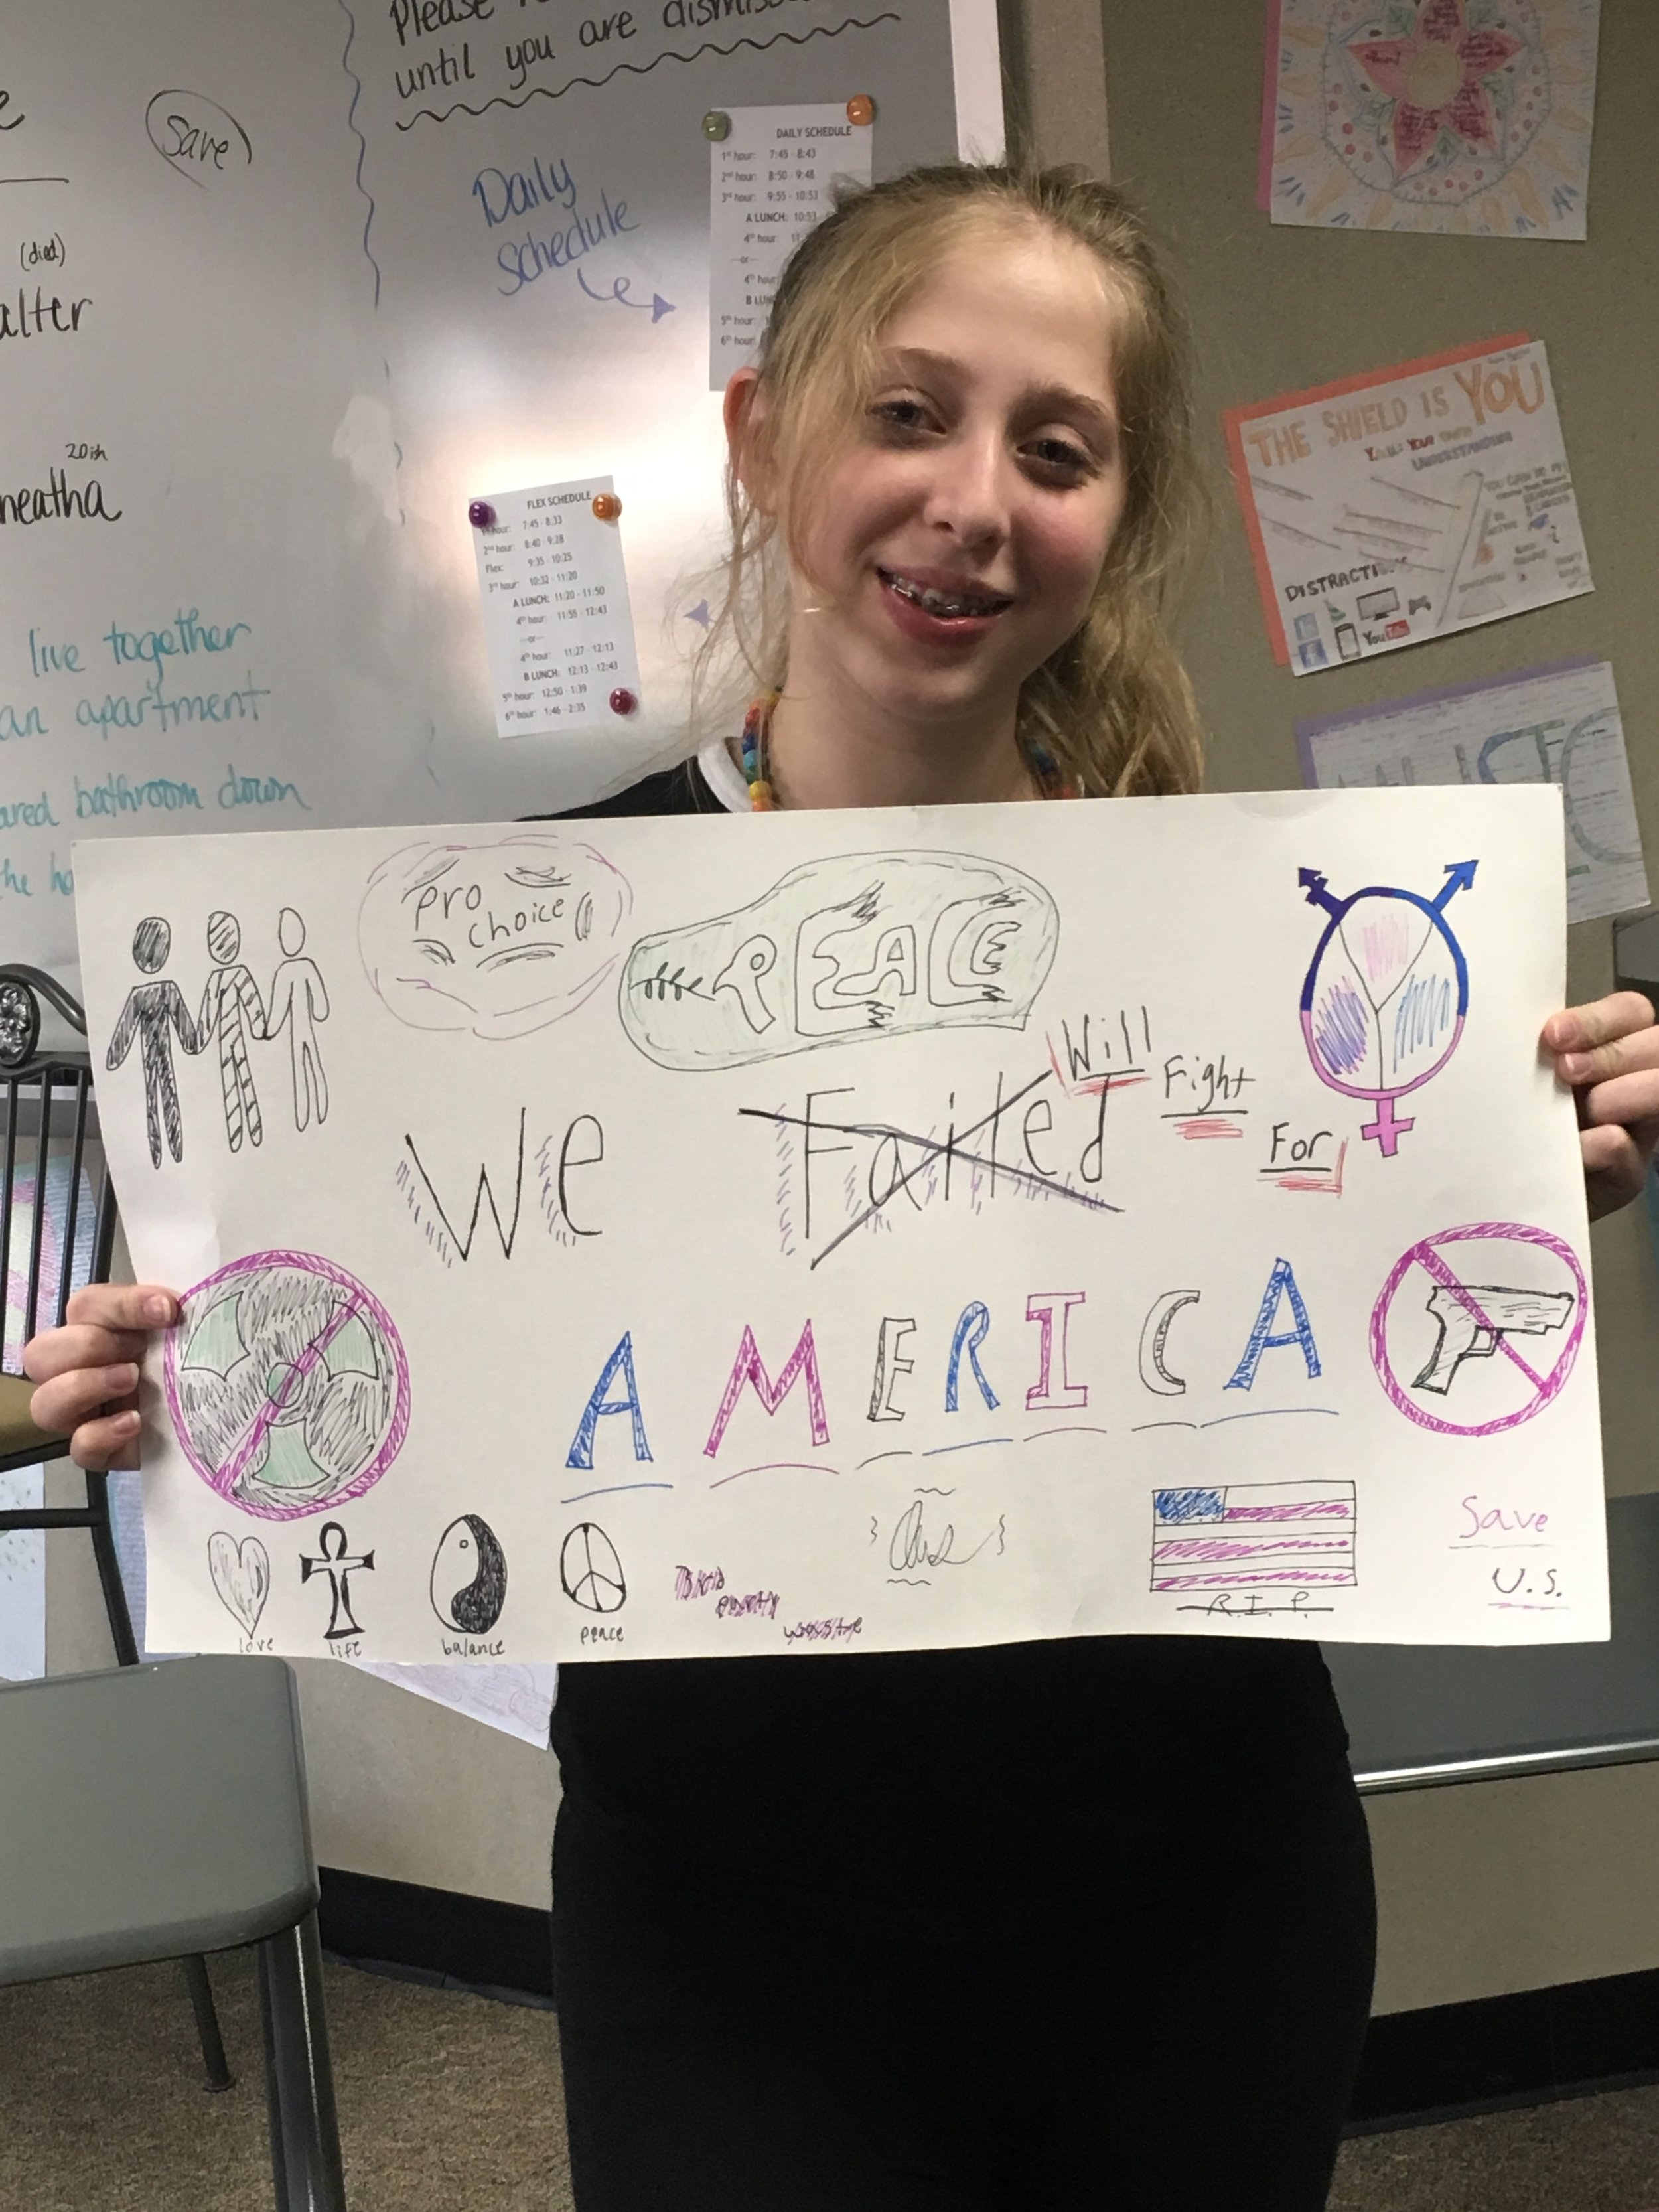 Please
until you are dismiss
Save
(died)
alter
20ish
neatha
live together
an apartment
ared bathroom down
the ha
Daily
Schedule
DAILY SCHEDULE
1st hour: 7:45 - 8:43
2nd hour: 8:50 - 9:48
3rd hour: 9:55 - 10:53
A LUNCH: 10:53
4th hour:
--or--
4th hour
B LUN
5th hour:
6th hour:
FLEX SCHEDULE
hour: 7:45 - 8:33
2nd hour: 8:40 - 9:28
Flex: 9:35 - 10:25
3rd hour: 10:32 - 11:20
A LUNCH: 11:20 - 11:50
4th hour: 11:55 - 12:43
--or--
4th hour: 11:27 - 12:13
B LUNCH: 12:13 - 12:43
5th hour: 12:50 - 1:39
6th hour: 1:46 - 2:35
THE SHIELD IS YOU
YOUR OWN
UNDERSTANDING
DISTRACTI
YouTube
Pro
choice
PEACE
We Failed Will Fight For
AMERICA
love
life
balance
peace
R.I.P.
Save
U.S.